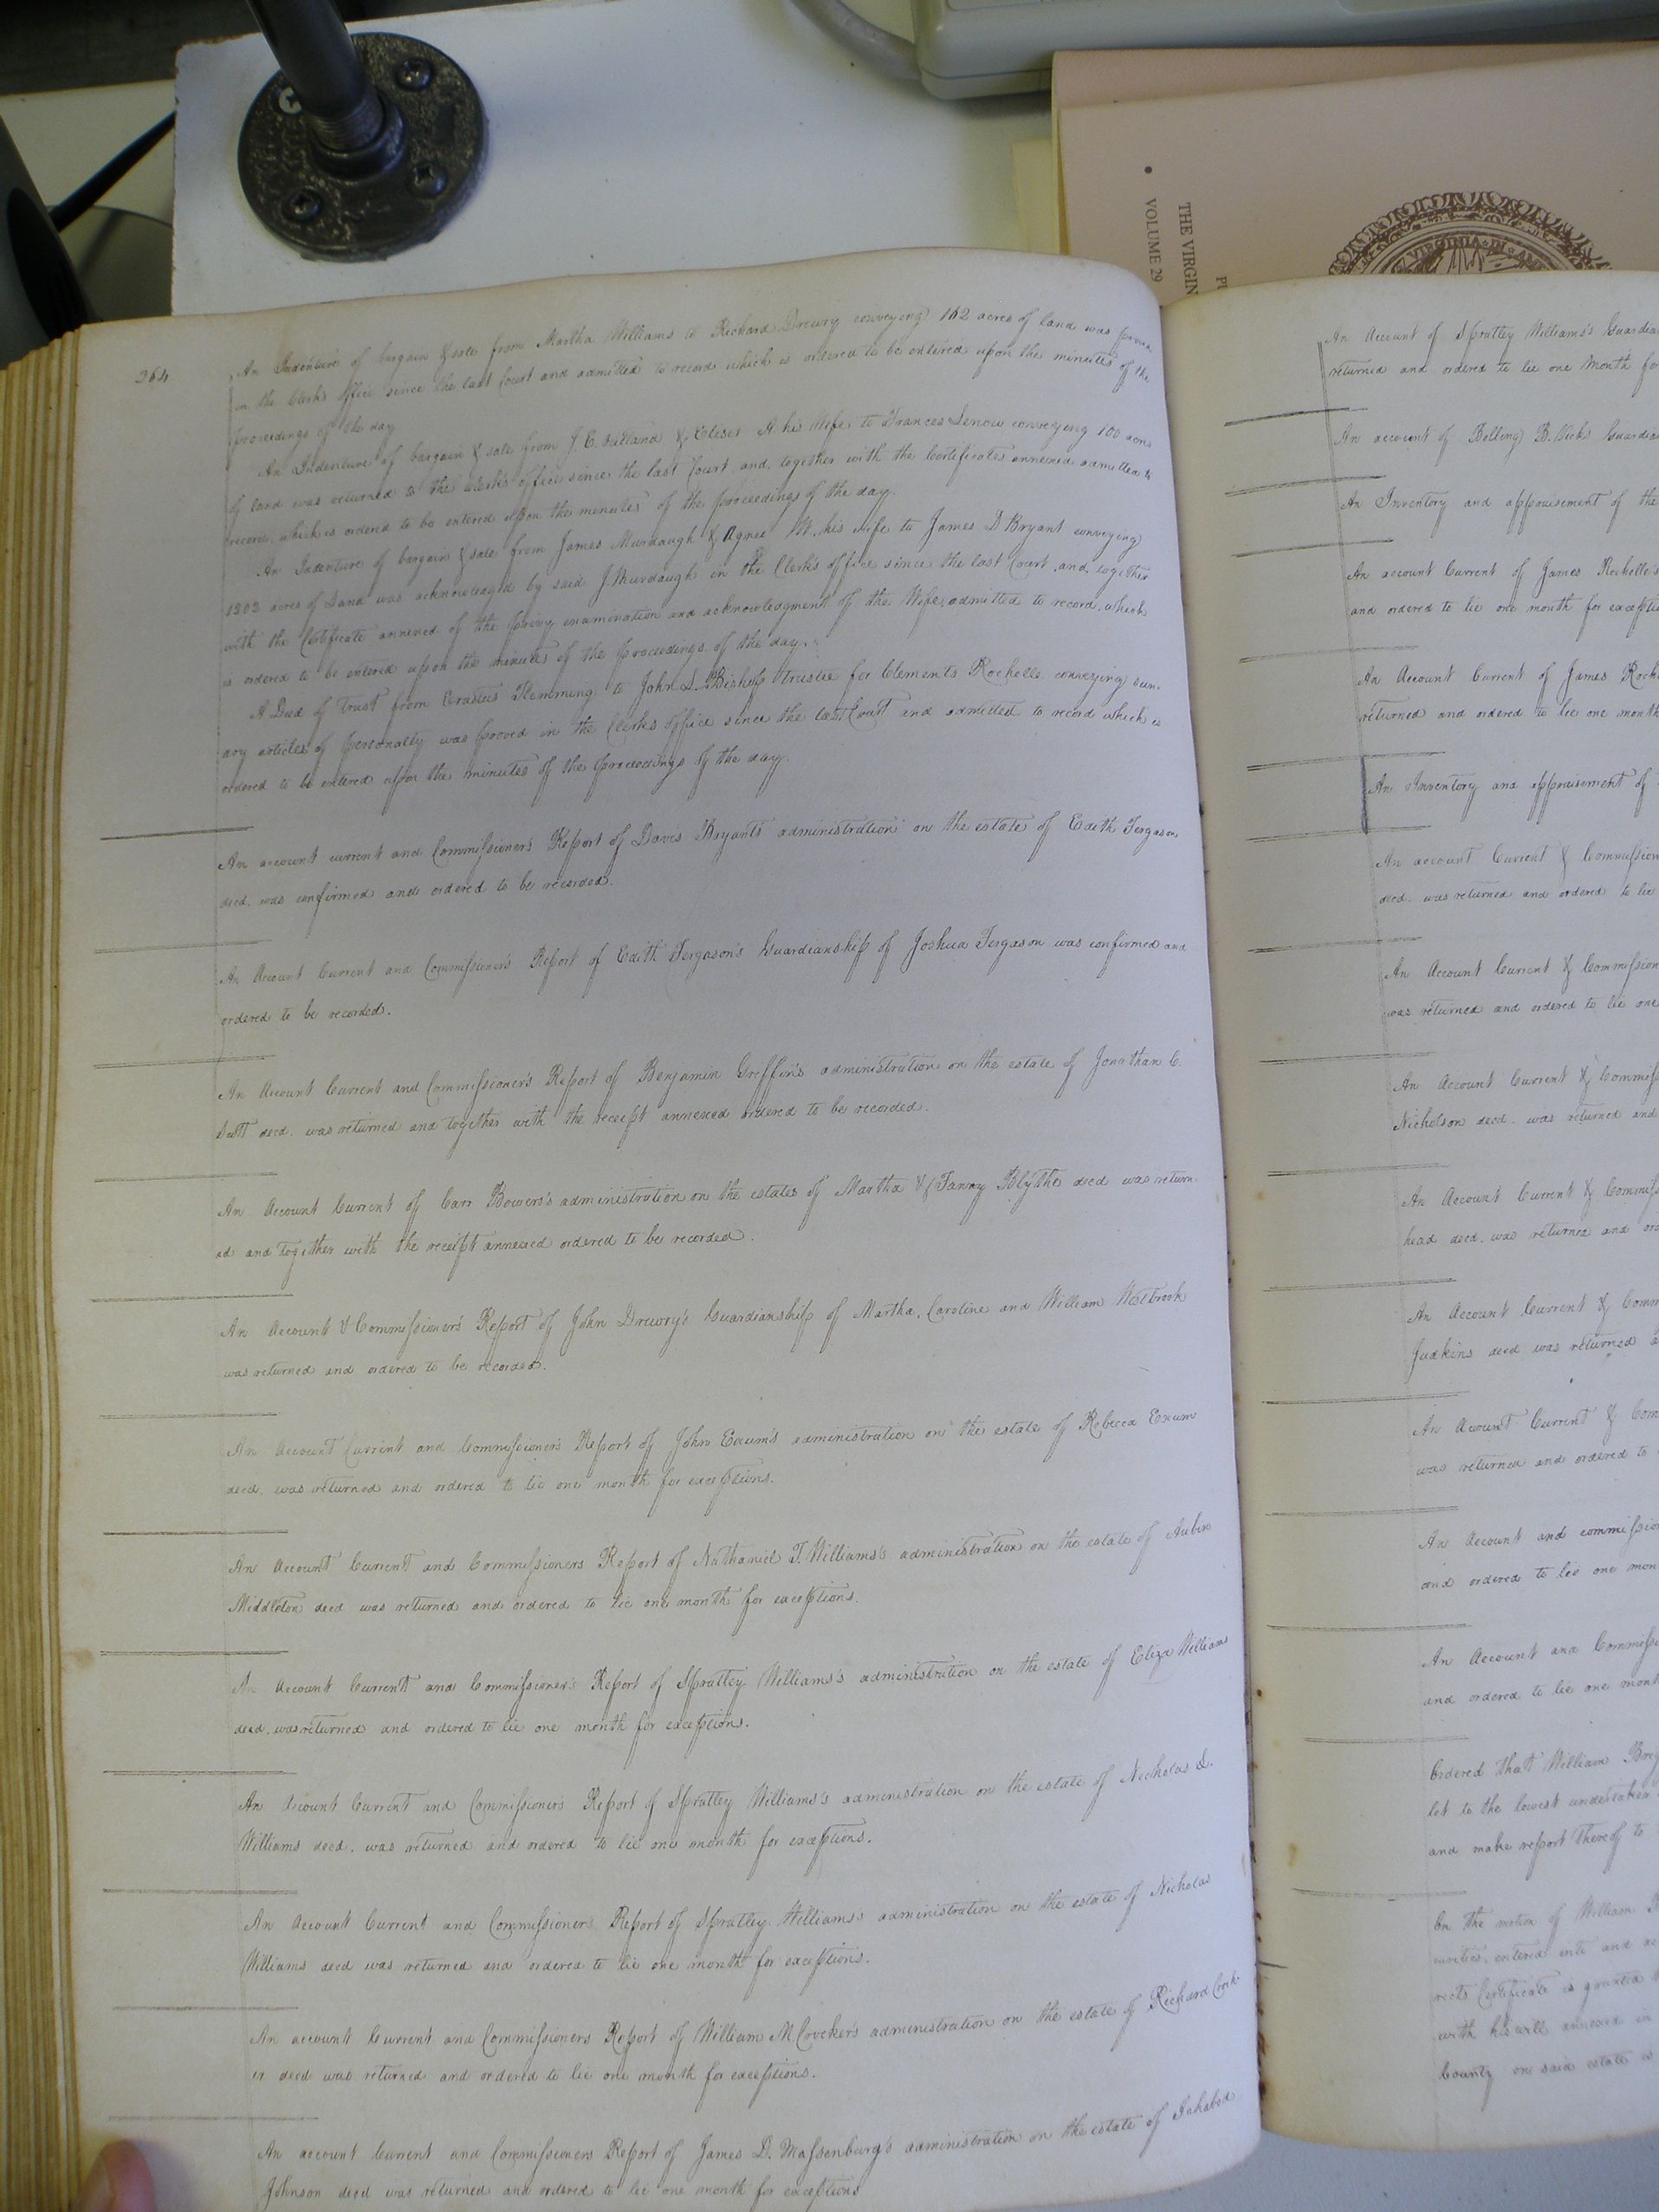 THE VIRGIN
VOLUME 29
VIRGINIA IN AM
364
An Indenture of bargain & sale from Martha Williams to Richard Drewry conveying 162 acres of land was proved
in the Clerks office since the last Court and admitted to record which is ordered to be entered upon the minutes of the
proceedings of the day
An Indenture of bargain & sale from J. E. & his Wife to Frances Lenow conveying 100 acres
of land was returned to the Clerk's office since the last Court and together with the Certificates annexed admitted to
record, which is ordered to be entered upon the minutes of the proceedings of the day.
An Indenture of bargain & sale from James Murdaugh & Agnes M. his wife to James D Bryant conveying
1302 acres of Land was acknowledged by said J Murdaugh in the Clerk's office since the last Court, and together
with the Certificate annexed of the privy examination and acknowledgment of the Wife, admitted to record, which
is ordered to be entered upon the minutes of the proceedings of the day.
A Deed of Trust from Erastus Flemming to John L. Bishop trustee for Clements Rochelle conveying sun-
dry articles of personalty was proved in the Clerks office since the last Court and admitted to record which is
ordered to be entered upon the minutes of the proceedings of the day.
An account current and Commissioner's Report of Davis Bryants administration on the estate of Edith Fergason
decd. was confirmed and ordered to be recorded.
An Account Current and Commissioner's Report of Edith Fergason's Guardianship of Joshua Fergason was confirmed and
ordered to be recorded.
An Account Current and Commissioner's Report of Benjamin Griffin's administration on the estate of Jonathan C.
Scott decd. was returned and together with the receipt annexed ordered to be recorded.
An Account Current of Carr Bowers's administration on the estates of Martha & Fanny Blythe decd was return-
ed and together with the receipt annexed ordered to be recorded.
An Account & Commissioner's Report of John Drewry's Guardianship of Martha, Caroline and William Westbrook
was returned and ordered to be recorded.
An Account Current and Commissioner's Report of John Exum's administration on the estate of Rebecca Exum
decd. was returned and ordered to lie one month for exceptions.
An Account Current and Commissioners Report of Nathaniel T. Williams's administration on the estate of
Middleton decd was returned and ordered to lie one month for exceptions.
An Account Current and Commissioner's Report of Spratley Williams's administration on the estate of Eliza Williams
decd. was returned and ordered to lie one month for exceptions.
An Account Current and Commissioner's Report of Spratley Williams's administration on the estate of Nicholas L.
Williams decd. was returned and ordered to lie one month for exceptions.
An Account Current and Commissioners Report of Spratley Williams's administration on the estate of Nicholas
Williams decd was returned and ordered to lie one month for exceptions.
An account Current and Commissioners Report of William M Crocker's administration on the estate of Richard Crock-
er decd was returned and ordered to lie one month for exceptions.
An account Current and Commissioners Report of James D. Massenburg's administration on the estate of Ichabod
Johnson decd was returned and ordered to lie one month for exceptions
An Account of Spratley Williams's Guardia
returned and ordered to lie one Month for
An account of Bolling B. Vick's Guardia
An Inventory and appraisement of the
An account Current of James Rochelle's
and ordered to lie one month for exceptio
An Account Current of James Roch
returned and ordered to lie one month
An Inventory and appraisement of
An account Current & Commission
decd. was returned and ordered to lie
An Account Current & Commission
was returned and ordered to lie one
An Account Current & Commiss
Nicholson decd. was returned and
An Account Current & Commiss
head decd. was returned and ord
An Account Current & Comm
Judkins decd was returned
An Account Current & Com
was returned and ordered to
An Account and commission
and ordered to lie one mon
An Account and Commissi
and ordered to lie one mont
Ordered that William
let to the lowest undertaker
and make report thereof to
On the motion of William
entered into and
Certificate is granted
with his will annexed in
County on said estate is